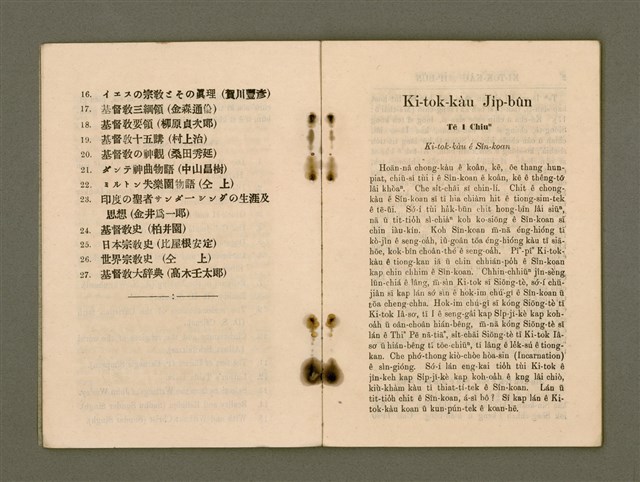 16. イエスの宗敎とその眞理 (賀川豐彥)
17. 基督敎三綱領 (金森通倫)
18. 基督敎要領 (柳原貞次郎)
19. 基督敎十五講 (村上治)
20. 基督敎の神觀 (桑田秀延)
21. ダンテ神曲物語 (中山昌樹)
22. ミルトン失樂園物語 (仝 上)
23. 印度の聖者サンダーシングの生涯及
思想 (金井爲一郎)
24. 基督敎史 (柏井園)
25. 日本宗敎史 (比屋根安定)
26. 世界宗敎史 (仝 上)
27. 基督敎大辞典 (高木壬太郎)
Ki-tok-kàu Ji̍p-bûn
Tē 1 Chiuⁿ
Ki-tok-kàu ê Sîn-koan
Hoān-nā chong-kàu ê koân, kē, ōe thang hun-
piat, chiū-sī tùi i ê Sîn-koan ê koân, kē ê thêng-tō͘
lâi khòaⁿ. Che si̍t-chāi sī chin-lí. Chit ê chong-
kàu ê Sîn-koan sī tī hia chiàm hit ê tiong-sim-tek
ê tē-ūi. Só͘-í tùi ha̍k-būn chit hong-bīn lâi siūⁿ,
nā ū tit-tio̍h sì-chiàⁿ koh ko-siōng ê Sîn-koan sī
chin iàu-kín. Koh Sîn-koan m̄-nā éng-hióng tī
kò-jîn ê seng-oa̍h, iû-goân tōa éng-hióng kàu tī siā-
hōe, kok-bîn choân-thé ê seng-oa̍h. Pîⁿ-pîⁿ Ki-tok-
kàu ê tiong-kan iā ū cháin chhián-po̍h ê Sîn-koan
kap chin chhim ê Sîn-koan. Chhin-chhiūⁿ jîn-sèng
lūn-chiá ê lâng, m̄-sìn Ki-tok sī Siōng-tè, só͘-í chū-
jiân sī kap lán só͘ sìn ê hok-im chú-gī ê Sîn-koan ū
tōa cheng-chha. Hok-im chú-gī sī kóng Siōng-tè tī
Ki-tok Iâ-so͘, tī I ê seng-gâi kap Si̍p-jī-kè kap koh-
oa̍h ū oân-choân hián-bêng, m̄-nā kóng Siōng-tè sī
lán ê Thiⁿ Pē nā-tiāⁿ, si̍t-chāi Siōng-tè tī Ki-tok Iâ-
so͘ ū hián-bêng tī tōe-chiūⁿ, tī lâng ê le̍k-sú ê tiong-
kan. Che phó͘-thong kiò-chòe hòa-sin (Incarnation)
ê sìn-gióng. Só͘-í lán eng-kai tio̍h tùi Ki-tok ê
jîn-keh kap Si̍p-jī-kè kap koh-oa̍h ê kng lâi chiò,
kih-khàm kàu tī thiat-tí-tek ê Sîn-koan. Lán ū
tit-tio̍h chit ê Sîn-koan, á-sī bô? Sī kap lán ê Ki-
tok-kàu koan ū kun-pún-tek ê koan-hē.